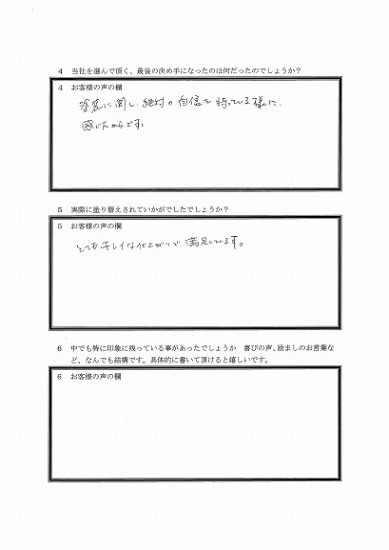 4 当社を選んで頂く、最後の決め手になったのは何だったのでしょうか？
4 お客様の声の欄
塗装に関し、絶対の自信を持っている様に、
感じたからです。
5 実際に塗り替えされていかがでしたでしょうか？
5 お客様の声の欄
とてもキレイな仕上がりで満足しています。
6 中でも特に印象に残っている事があったでしょうか 喜びの声、励ましのお言葉な
ど、なんでも結構です。具体的に書いて頂けると嬉しいです。
6 お客様の声の欄